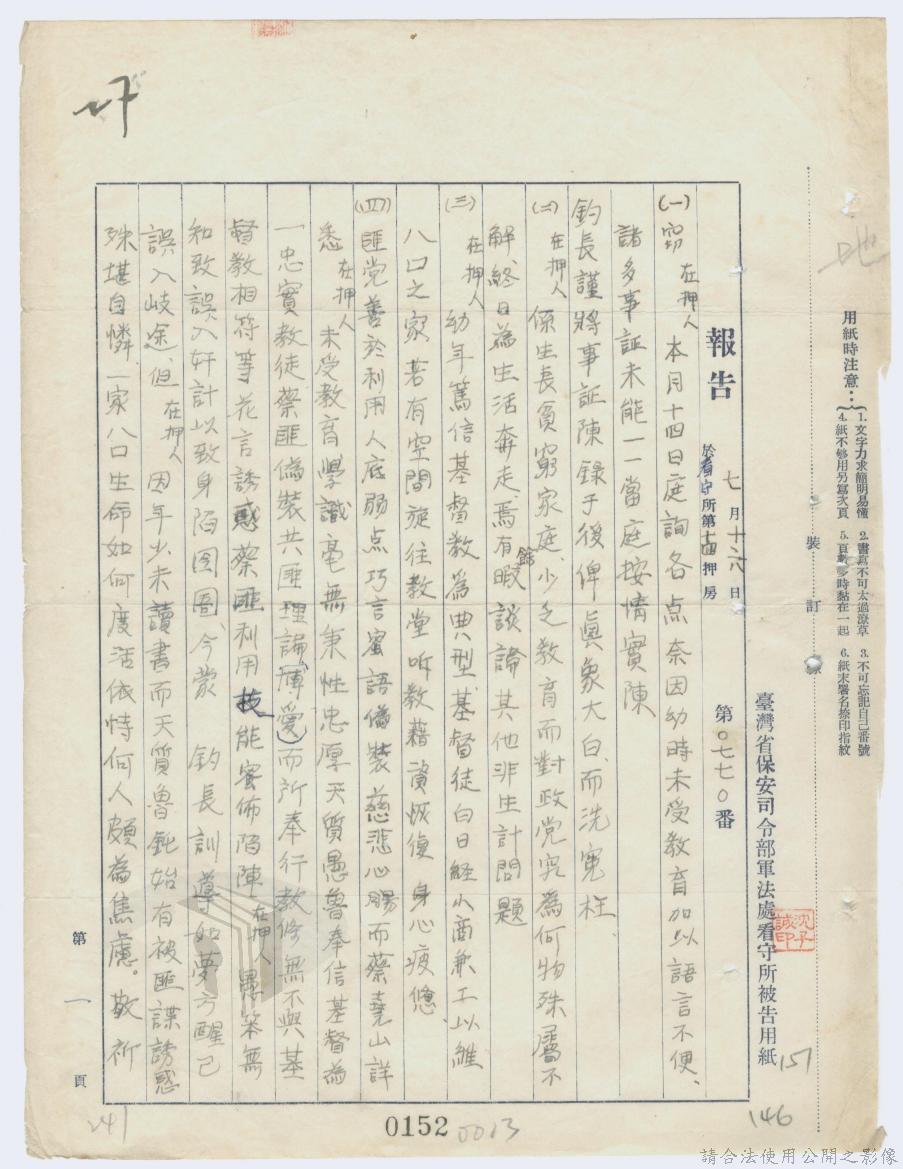 用紙時注意：
1. 文字力求簡明易懂
2. 書寫不可太過潦草
3. 不可忘記自己番號
4. 紙不够用另寫次頁
5. 頁數多時黏在一起
6. 紙末署名捺印指紋
裝訂線
臺灣省保安司令部軍法處看守所被告用紙
報告
七月十六日
於看守所第十四押房
第〇七七〇番
(一)竊在押人本月十四日庭詢各点奈因幼時未受教育加以語言不便、
諸多事証未能一一當庭按情實陳
鈞長謹將事証陳錄于後俾眞象大白、而洗寃枉、
(二)在押人係生長貧窮家庭、少乏教育而對政党究為何物殊屬不
解、終日為生活奔走、焉有餘暇談論其他非生計問題
(三)在押人幼年篤信基督教為典型、基督徒白日経小商兼工、以維
八口之家若有空間旋往教堂听教藉資恢復身心疲憊
(四)匪党善於利用人底弱点巧言蜜語偽裝慈悲心腸而蔡堯山詳
悉在押人未受教育學識毫無秉性忠厚天質愚魯奉信基督為
一忠實教徒蔡匪偽裝共匪理論(博愛)而所奉行教條無不與基
督教相符等花言誘惑蔡匪利用技能蜜佈陷陣在押人愚笨無
知致誤入奸計以致身陷囹圄、今蒙 鈞長訓導如夢方醒已
誤入岐途、但在押人因年少未讀書而天質魯鈍始有被匪諜誘惑
殊堪自憐、一家八口生命如何度活依恃何人頗為焦慮。敬祈
第一頁
沈子誠印
151
146
241
0152
0013
請合法使用公開之影像